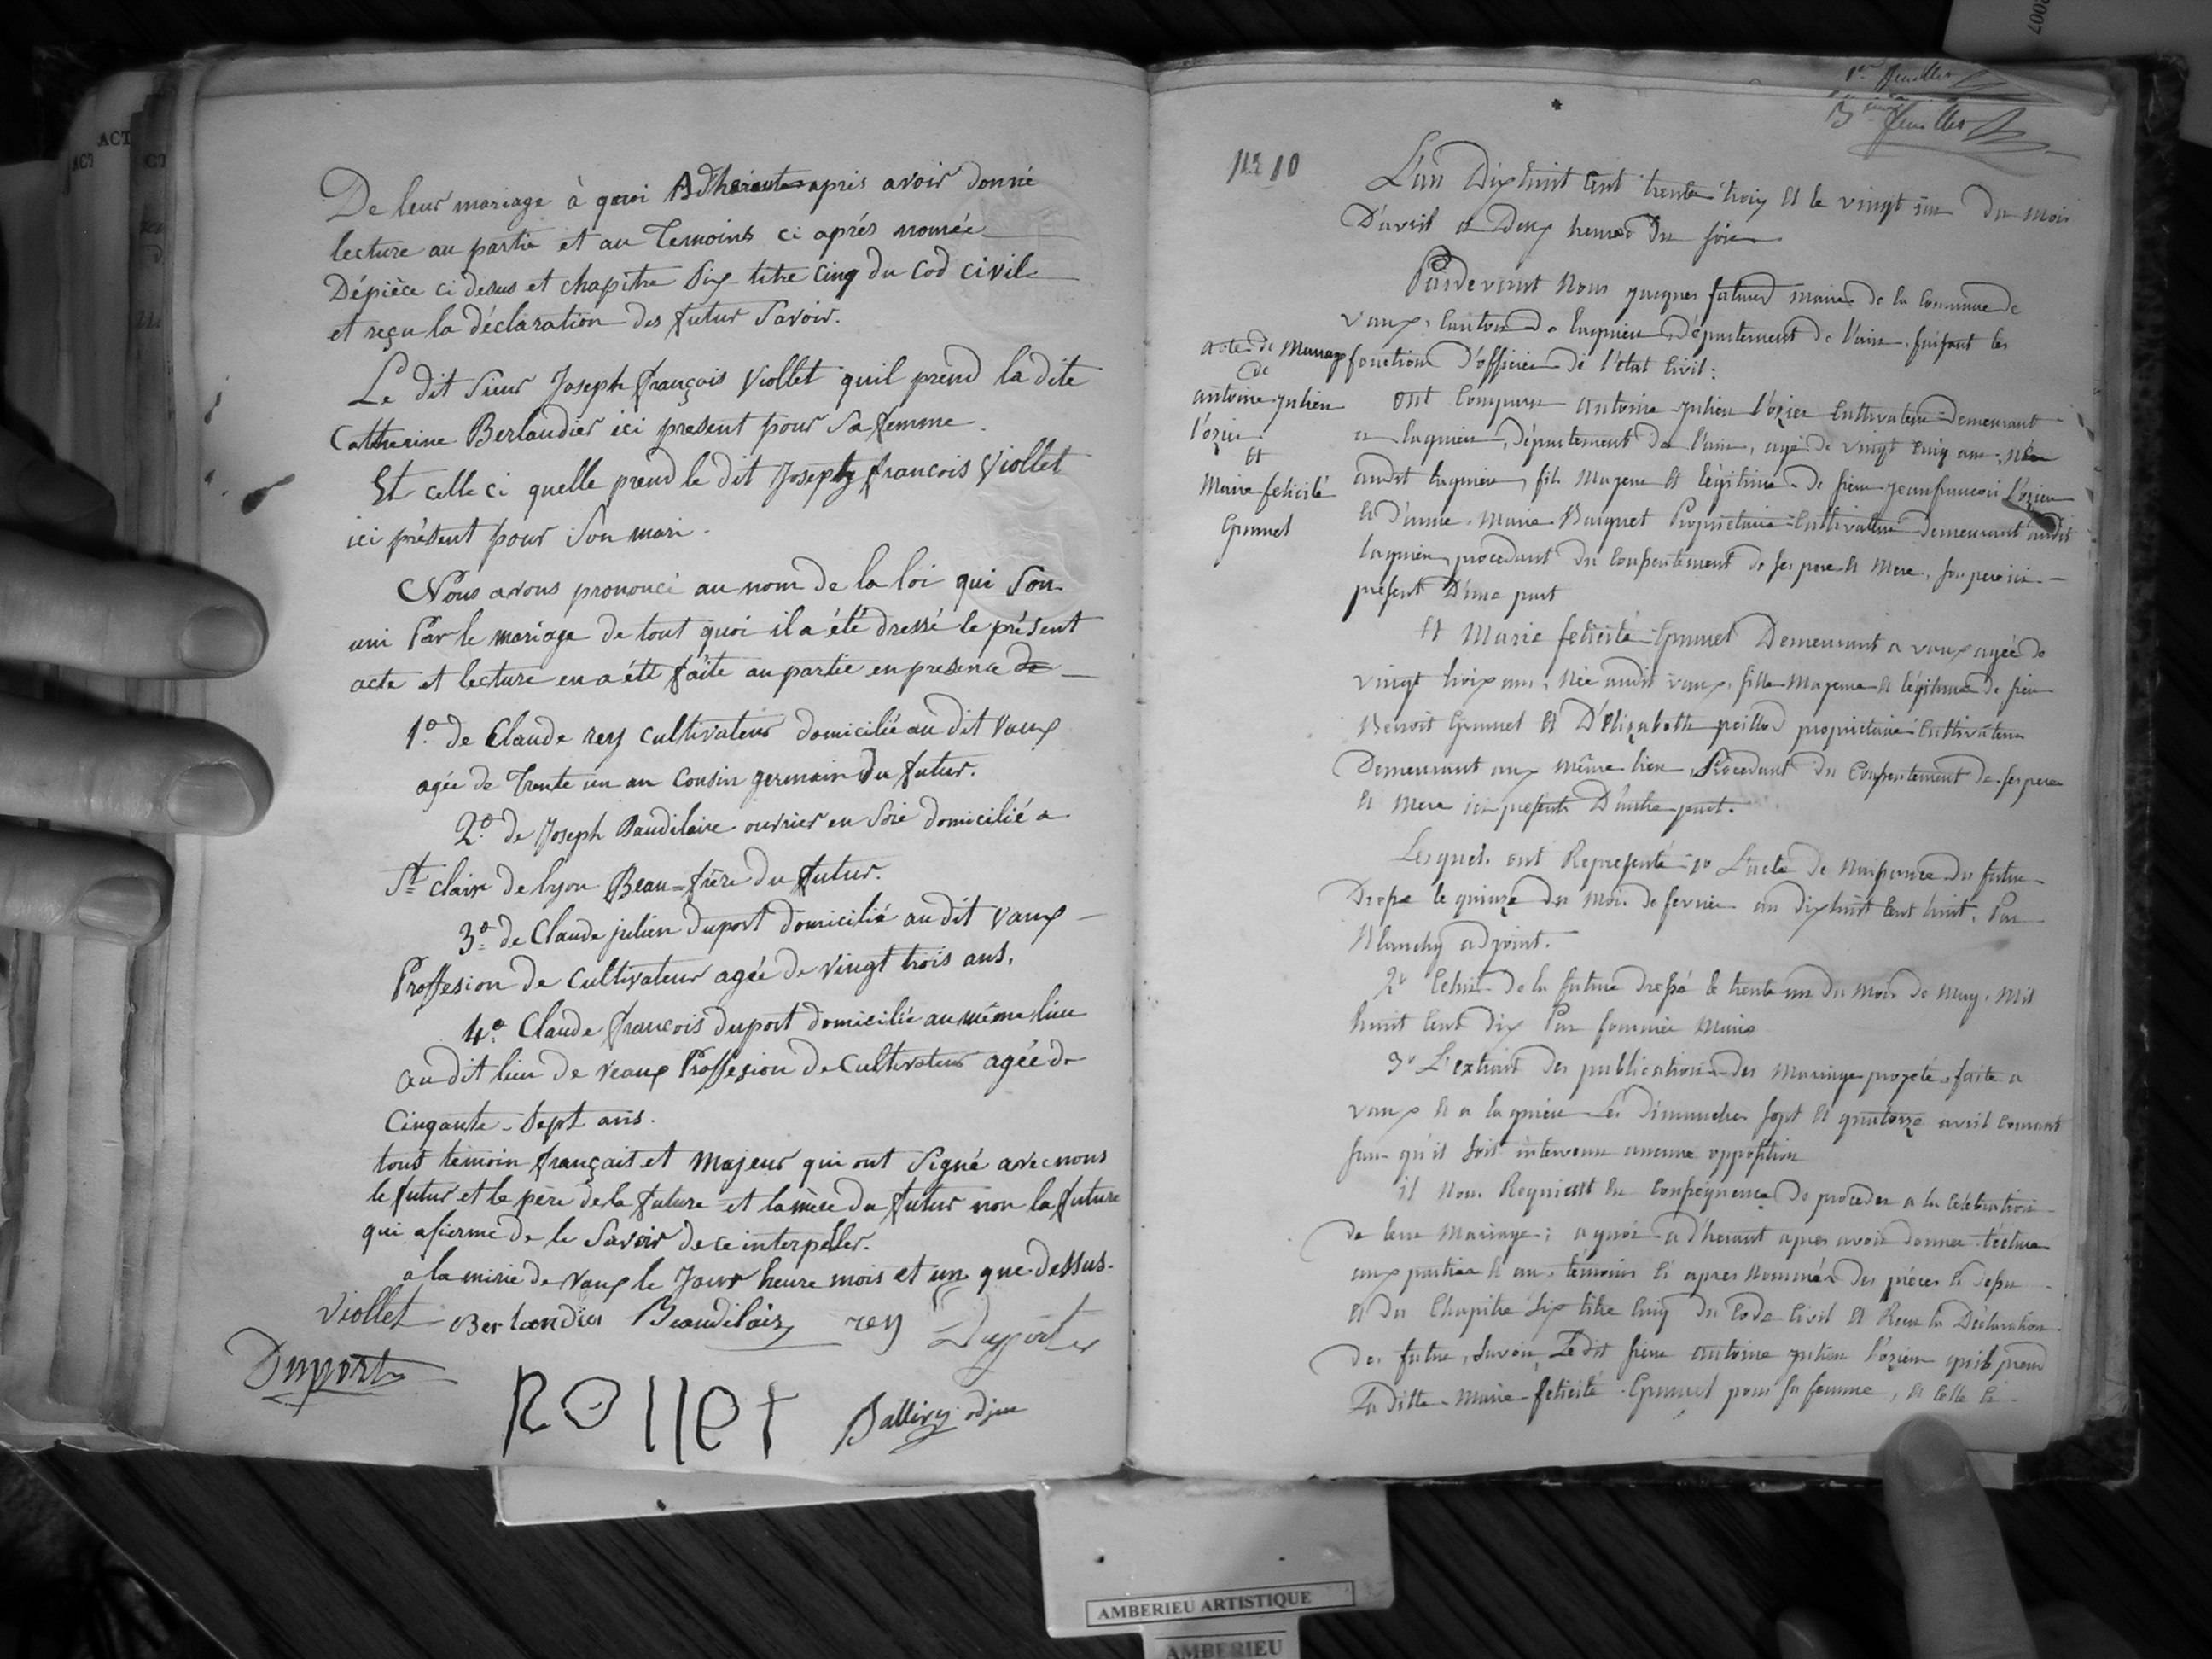 De leur mariage à quoi Adheiute après avoir donné
lecture au partie et au Temoins ci aprés nomée
Dépièce ci desus et chapitre Six titre Cinq du Cod civil
et reçu la déclaration des futur Savoir.
Le dit Sieur Joseph françois Viollet quil prend la dite
Catherine Berlaudier ici present pour Sa femme.
Et celle ci quelle prend le dit Joseph francois Viollet
ici présent pour Son mari.
Nous avons prononcé au nom de la loi qui Son
uni Par le mariage de tout quoi il a été dressé le présent
acte et lecture en a été faite au partie en presence de
1º. de Claude rey Cultivateur domicilié au dit Vaux
agée de Trente un an Cousin germain Du futur.
2º. de Joseph Baudilaire ouvrier en Soie domicilié a
St. clair de lyon Beau=frère du futur.
3º. de Claude julien Duport domicilié au dit Vaux
Proffesion de Cultivateur agée de Vingt trois ans.
4º. Claude francois duport domicilié au même lieu
au dit lieu de Veaux Proffesion de Cultivateur agée de
Cinqante-Sept ans.
tout temoin français et Majeur qui ont Signé avec nous
le futur et le père de la future et la mère du futur non la future
qui afierme de le Savoir de ce interpeller.
a la mirie de Vaux le Jour heure mois et un que dessus.
Viollet Berlandier Beaudilair rey Duport
Duport
ROllet Ballivy adjoin
1er feuillet
3 feuillet
Nº 10
L'an Dix huit Cent trente trois et le vingt un du mois
D'avril a Deux heures du soir
Pardevant Nous jacques futaud maire de la Commune de
Vaux, Canton de lagnieu, Département de l'ain, faisant les
fonction D'officier de l'état Civil:
acte de Mariage
de
antoine julien
l'ozier
Et
Marie felicité
Grumel
ont Comparu antoine julien l'ozier Cultivateur Demeurant
a lagnieu, Département de l'ain, agé de vingt Cinq ans, Né
audit lagnieu, fils Majeur et légitime de sieur jean francois l'ozier
et d'anne Marie Baquet Propriétaire Cultivateur Demeurant audit
lagnieu, procedant du Consentement de ses pere et Mere, son pere ici
présent D'une part
et Marie felicité Grumel Demeurant a vaux agée de
vingt trois ans, Née audit vaux, fille Majeure et légitime de sieur
Benoit Grumel et D'Elizabeth peillod propriétaire Cultivateur
Demeurant aux même lieu, Procedant du Consentement de ses pere
et Mere ici présents D'autre part.
Lesquels ont Représenté 1º L'acte de Naissance du futur
Dressé le quinze du Mois de fevrier an dix huit Cent huit, Par
Blanchy adjoint.
2º Celui de la future dressé le trente un du Mois de May, Mil
huit Cent Dix Par Maire
3º L'extrait des publications des Mariage projeté, faite a
vaux et a lagnieu Les Dimanches sept et quatorze avril Courant
sans qu'il soit intervenu aucune opposition
il Nous Requient En Conséquence de proceder a la Célébration
de leur Mariage; a quoi adhérant apres avoir donnée lecture
aux parties et aux témoins Ci apres Nommés des pièces Ci dessu
et du Chapitre Six titre Cinq du Code Civil et Recu la Déclaration
des futur, Savoir, Le dit sieur antoine julien l'ozier qu'il prend
La ditte Marie felicité Grumel pour sa femme, et Celle Ci
AMBERIEU ARTISTIQUE
AMBERIEU
2007
ACT
ACT
CT